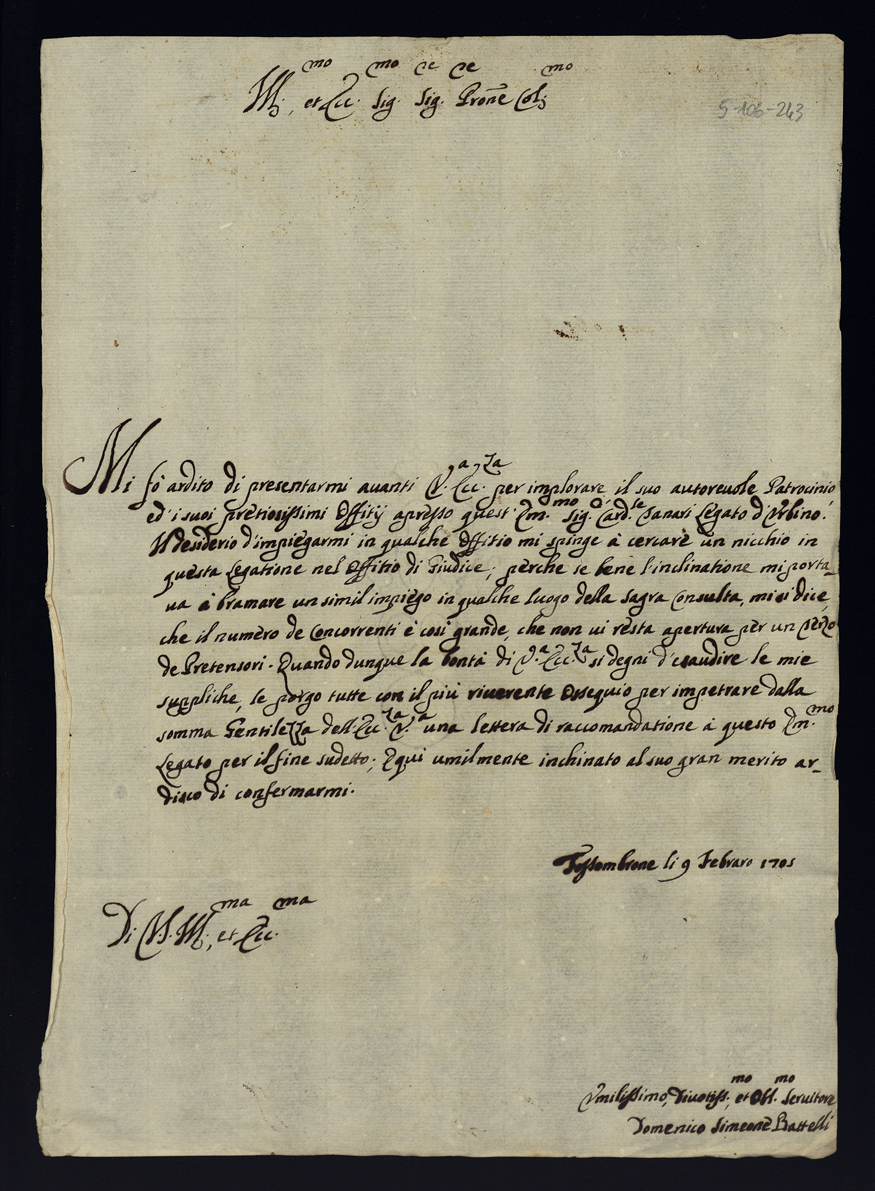 Ill.mo, et Ecc.mo Sig.re Sig.re Prone Col.mo
5-106-243
Mi fò ardito di presentarmi auanti V.a Ecc.za per implorare il suo autoreuole Patrocinio
ed' i suoi pretiosissimi Offitij apresso quest' Em.mo Sig.r Card.le Tanari Legato d'Vrbino.
Il desiderio d'impiegarmi in qualche offitio mi spinge à cercare un nicchio in
questa Legatione nel Offitio di Giudice; perche se bene l'inclinatione mi porta_
ua à bramare un simil impiego in qualche luogo della sagra Consulta, mi si dice,
che il numero de Concorrenti è così grande, che non ui resta apertura per un terzo
de Pretensori. Quando dunque la bontà di V.a Ecc.za si degni d'esaudire le mie
suppliche, le porgo tutte con il più riuerente Ossequio per impetrare dalla
somma Gentilezza dell'Ecc.za V.a una lettera di raccomandatione à questo Em.mo
Legato per il fine sudetto; E qui umilmente inchinato al suo gran merito ar_
disco di confermarmi.
Fossombrone li 9 Febraro 1701
Di V.S. Ill.ma, et Ecc.ma
Vmilissimo, Diuotiss.mo, et Obl.mo Seruitore
Domenico Simeone Battelli